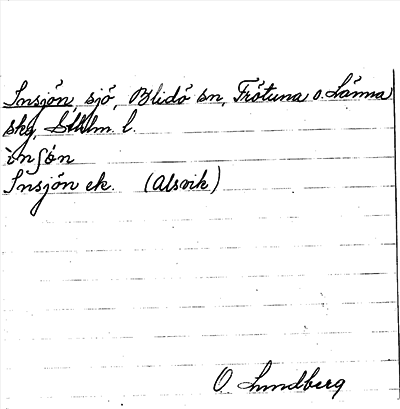 Insjön, sjö, Blidö sn, Frötuna o. Länna
skg, Sthlm. l.
ìnʃón
Insjön ek. (Alsvik)
O Lundberg